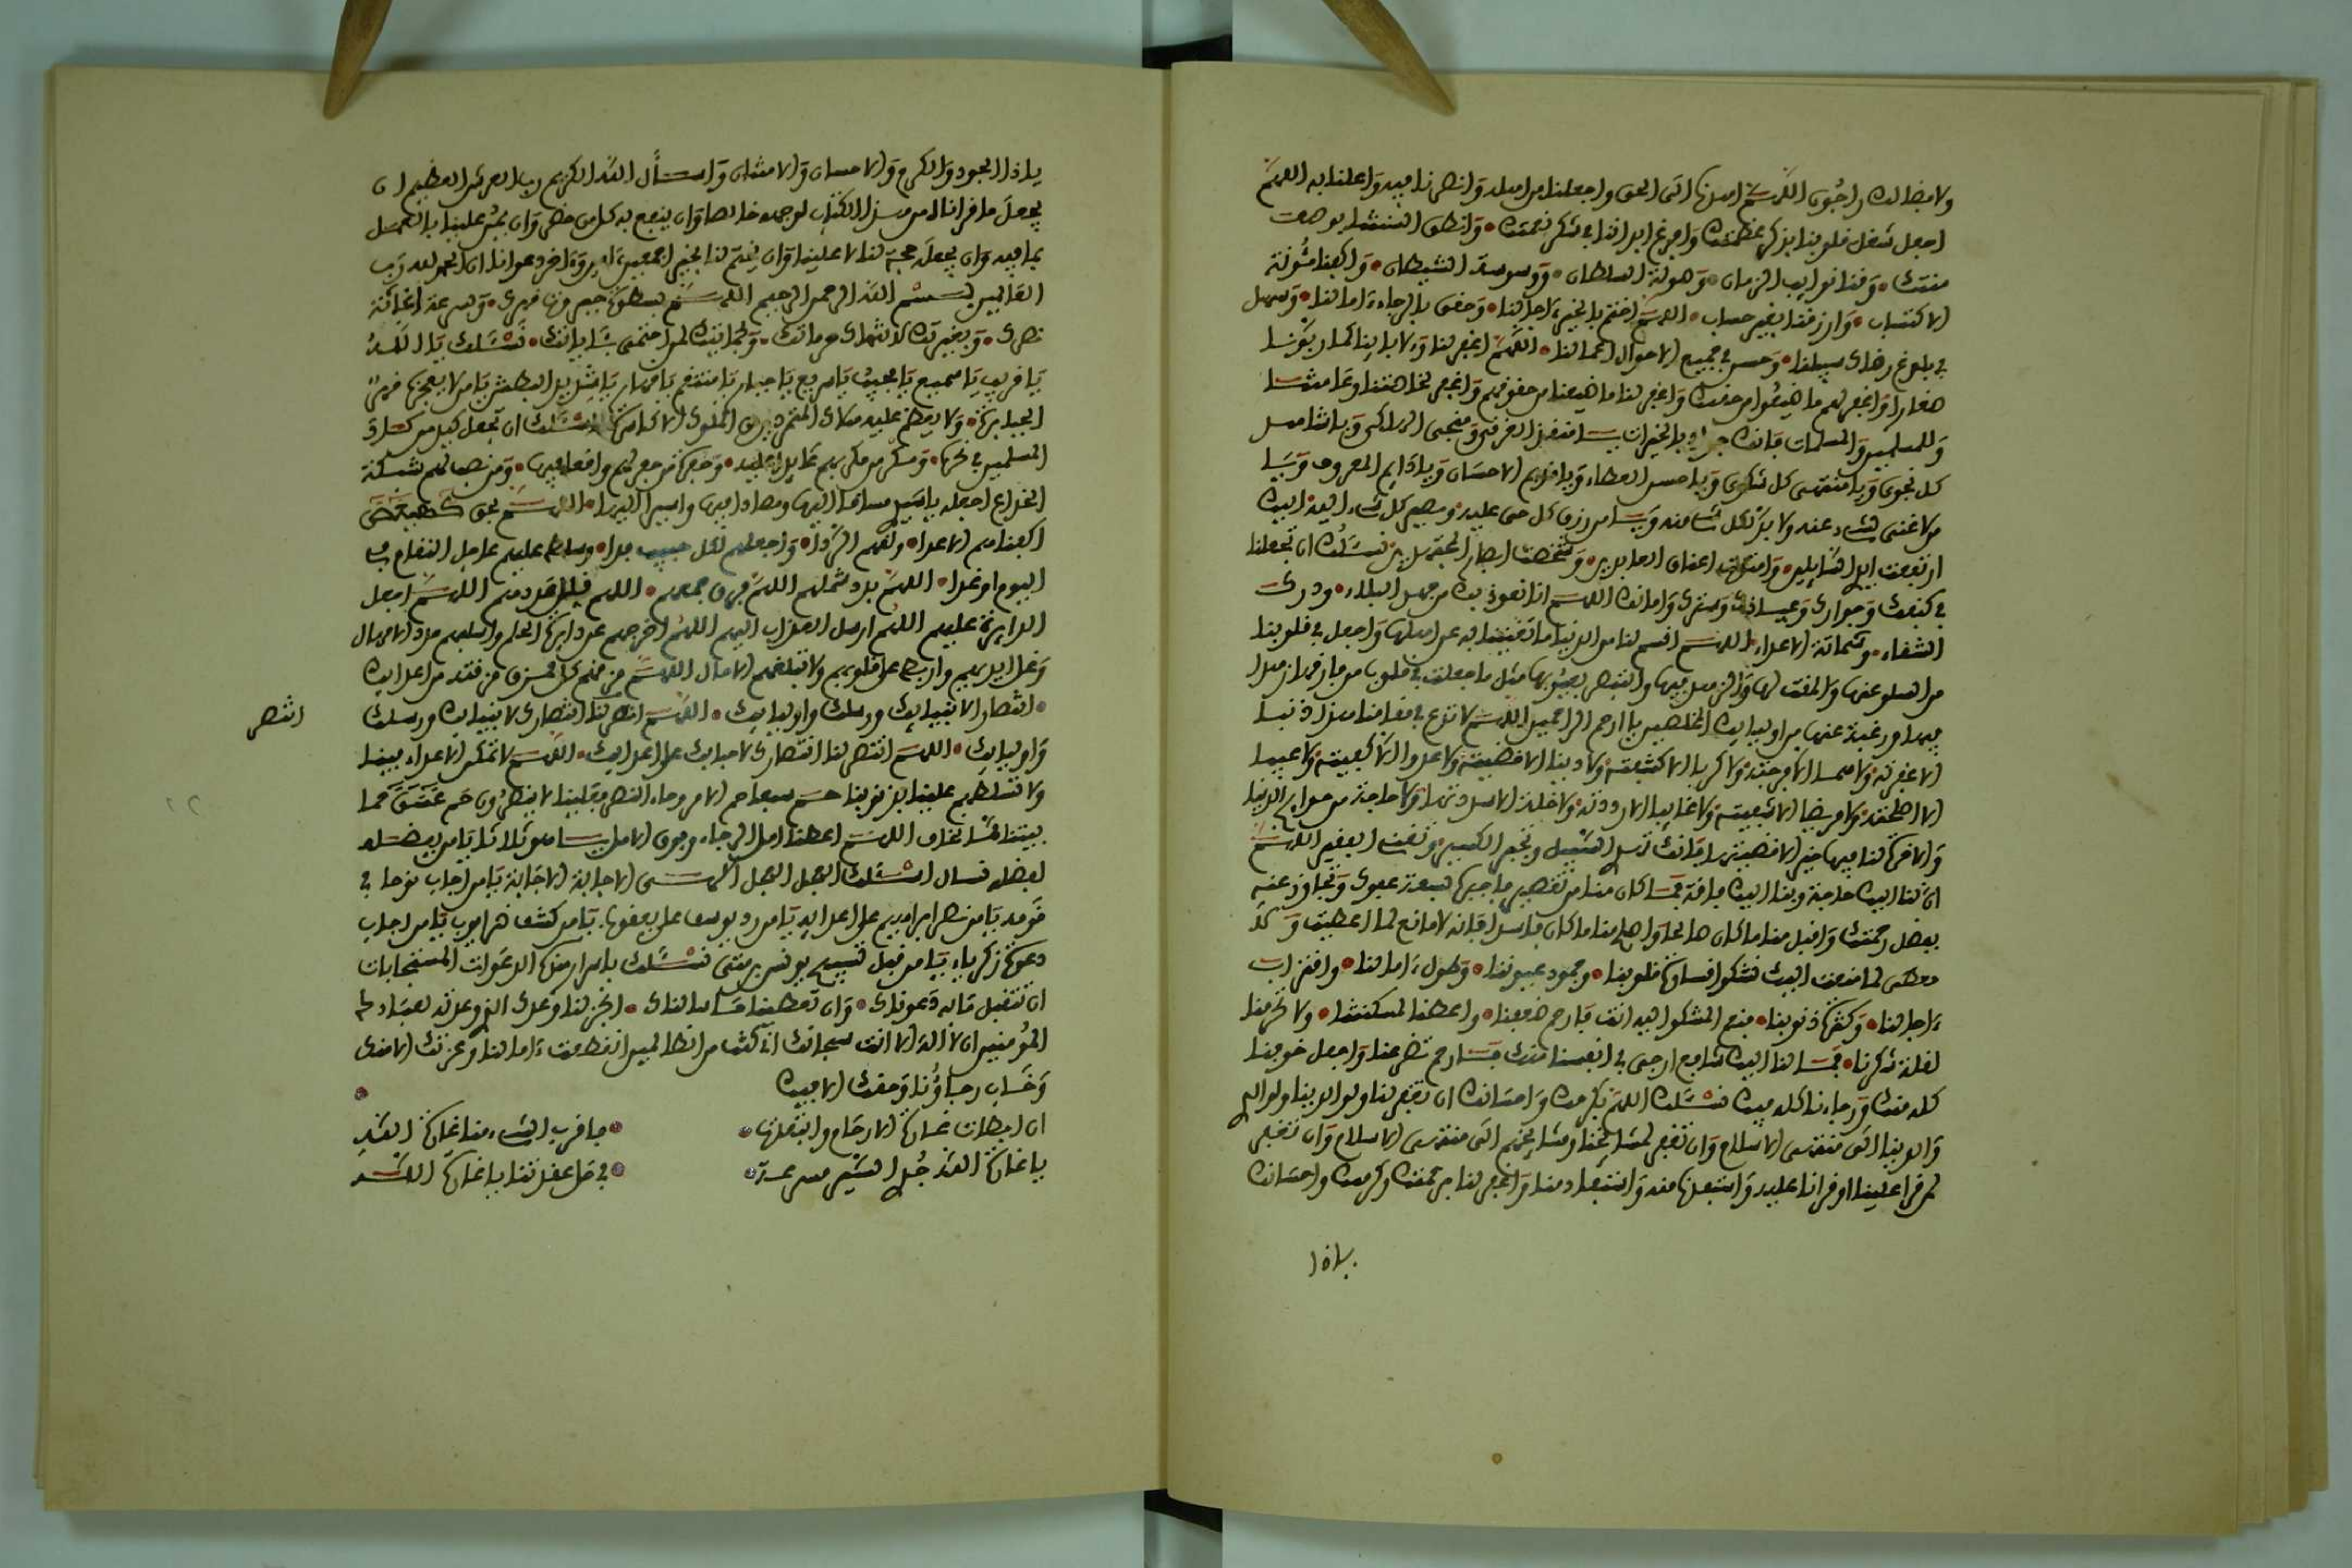 اجعل شغل قلوبنا بذكر عظمتك وافرغ ابداننا في شكر نعمتك وانطق السنتنا بوصف
منتك وقنا نوايب الزمان وصولة السلطان ووسوسة الشيطان واكفنا مئونة
الاكتساب وارزقنا بغير حساب اللهم اختم بالخير ءاجالنا وحقق بالرجاء ءامالنا وسهل
في بلوغ رضاك سبلنا وحسن في جميع الاحوال اعمالنا اللهم اغفر لنا ولابائنا كما ربونا
صغارا واغفر لهم ما ضيعوا من حقك واغفر لنا ما ضيعنا من حقوقهم واغفر لخاصتنا وعامتنا
وللمسلمين والمسلمات فانك جواد بالخيرات يا منقذ الغرقى ومنجي الهلكى ويا شاهد
كل نجوى ويا منتهى كل شكوى ويا حسن العطاء ويا قديم الاحسان ويا دايم المعروف ويا
من لا غنى لشيء عنه ولا بد لكل شيء منه ويا من رزق كل حي عليه ومصير كل شيء اليه اليك
ارتفعت ايدي السايلين وامتدت اعناق العابدين وشخصت ابصار المجتهدين نسئلك ان تجعلنا
في كنفك وجوارك وعياذك وسترك وامانك اللهم انا نعوذ بك من جهد البلاء ودرك
الشقاء وشماتة الاعداء اللهم اقسم لنا من الدنيا ما تقينا به عن اهلها واجعل في قلوبنا
من السلو عنها والمقت لها والزهد فيها والتبصر بعيوبها مثل ما جعلت في قلوب من فارقها زهدا
فيها ورغبة عنها من اوليائك المخلصين يا ارحم الراحمين اللهم لا تدع في مقامنا هذا ذنبا
الا غفرته ولا هما الا فرجته ولا كربا الا كشفته ولا دينا الا قضيته ولا عدوا الا كفيته ولا عيبا
الا اصلحته ولا مريضا الا شفيته ولا غايبا الا رددته ولا خلة الا سددتها ولا حاجة من حوايج الدنيا
والاخرة لنا فيها خير الا قضيتها فانك تهدي السبيل وتجبر الكسير وتغني الفقير اللهم
ان لنا اليك حاجة وبنا اليك فاقة فما كان منا من تقصير فاجبره بسعة عفوك وتجاوز عنه
بفضل رحمتك واقبل منا ما كان صالحا واصلح منا ما كان فاسدا فانه لا مانع لما اعطيت ولا
معطي لما منعت اليك نشكوا قساوة قلوبنا وجمود عيوننا وطول ءامالنا واقتراب
ءاجالنا وكثرة ذنوبنا فنعم المشكو اليه انت فارحم ضعفنا واعطنا لمسكنتنا ولا تحرمنا
لقلة شكرنا فما لنا اليك شافع ارجى في انفسنا منك فارحم تضرعنا واجعل خوفنا
كله منك ورجاءنا كله فيك نسئلك اللهم بكرمك واحسانك ان تغفر لنا ولوالدينا ولوالدي
والدينا الى منتهى الاسلام وان تغفر لمشايخنا ومشايخهم الى منتهى الاسلام وان تغفر
لمن قرا علينا او قرانا عليه واستفدنا منه واستفاد منا واغفر لنا برحمتك وكرمك واحسانك
ياذا
ياذا الجود والكرم والاحسان والامتنان واسأل الله الكريم رب العرش العظيم ان
يجعل ما قراناه من هذا الكتاب لوجهه خالصا وان ينفع به كل من حضر وان يمن علينا بالعمل
بما فيه وان يجعله حجة لنا لا علينا وان يختم لنا بخير اجمعين ءامين وءاخر دعوانا ان الحمد لله رب
العالمين بسم الله الرحمن الرحيم اللهم بسطوة جبروت قهرك وبسرعة اغاثة
نصرك وبغيرتك لانتهاك حرماتك وبحمايتك لمن احتمى بئاياتك نسئلك يا الله
يا قريب يا سميع يا مجيب يا سريع يا جبار يا منتقم يا قهار يا شديد البطش يا من لا يعجزه قهر
الجبابرة ولا يعظم عليه هلاك المتمردين الملوك الاكاسرة نسئلك ان تجعل كيد من كادني
المسلمين في نحره ومكر من مكر بهم عايدا عليه وحفرة من حفر لهم واقعا فيها ومن نصب لهم شبكة
الخداع اجعله يا سيدي مساقا اليها ومصادا فيها واسيرا لديها اللهم بحق كهيعص
اكفنا هم الاعدا ولقهم الردا واجعلهم لكل حبيب فدا وسلط عليهم عاجل النقمة في
اليوم او غدا اللهم بدد شملهم اللهم فرق جمعهم اللهم قلل عددهم اللهم اجعل
الدايرة عليهم اللهم ارسل العذاب اليهم اللهم اخرجهم عن دايرة الحلم واسلبهم مدد الامهال
وغل ايديهم واربط على قلوبهم ولا تبلغهم الامال اللهم مزقهم كل ممزق مزقته من اعدايك
انتصارا لانبيايك ورسلك واوليايك اللهم انتصر لنا انتصارك لانبيايك ورسلك
واوليايك اللهم انتصر لنا انتصارك لاحبابك على اعدايك اللهم لا تمكن الاعداء فينا
ولا تسلطهم علينا بذنوبنا حم سبعا حم الامر وجاء النصر فعلينا لا ينصرون حم عسق حما
يتنا مما نخاف اللهم اعطنا امل الرجاء وفوق الامل يا هو ثلاثا يا من بفضله
لفضله نسال اسئلك العجل العجل الهي الاجابة الاجابة يا من اجاب نوحا في
قومه يا من نصر ابراهيم على اعدايه يا من رد يوسف على يعقوب يا من كشف ضر ايوب يا من اجاب
دعوة زكرياء يا من قبل تسبيح يونس بن متى نسئلك باسرار هذه الدعوات المستجابات
ان تتقبل ما به دعوناك وان تعطينا ما سالناك انجز لنا وعدك الذي وعدته لعبادك
المؤمنين ان لا اله الا انت سبحانك اني كنت من الظالمين انقطعت ءامالنا وعزتك الا منك
وخاب رجاؤنا وحقك الا فيك
ان ابطات غارة الارحام وابتعدت ما قرب الشيء منا غارة الله
يا غارة الله جدي السير مسرعة في حل عقدتنا يا غارة الله
انتصر